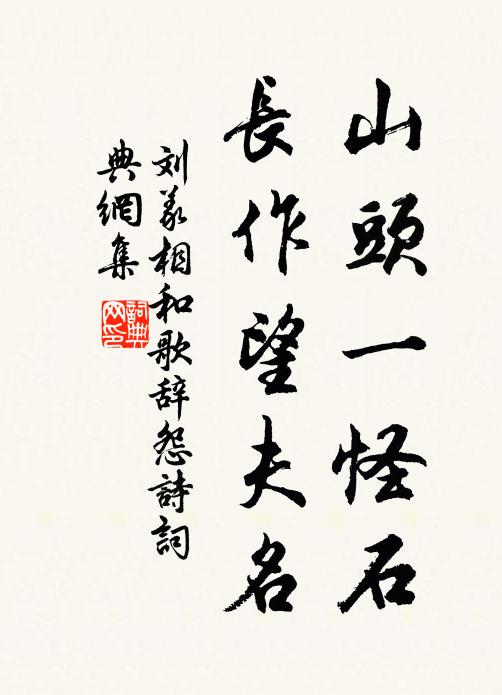 山頭一怪石
長作望夫名
刘义相和歌辞怨詩詞
典網集
詞典網印